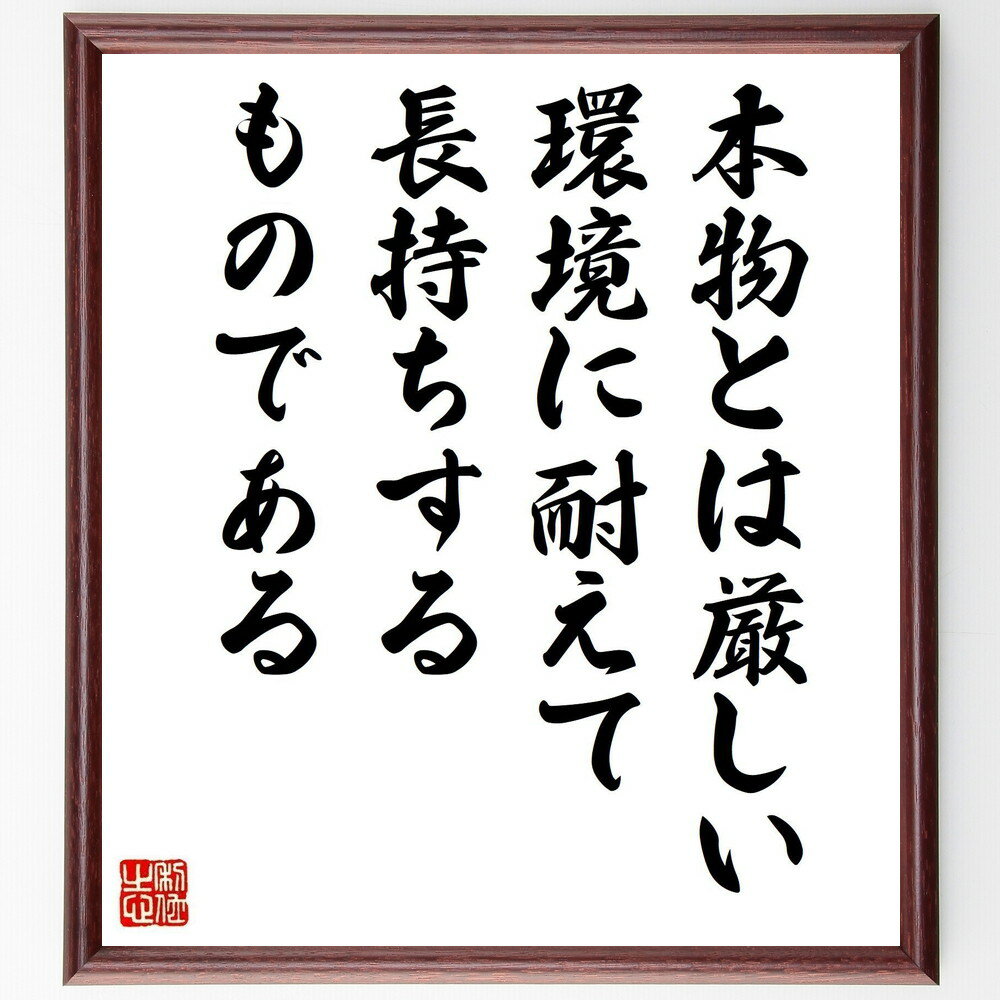 本物とは厳しい
環境に耐えて
長持ちする
ものである